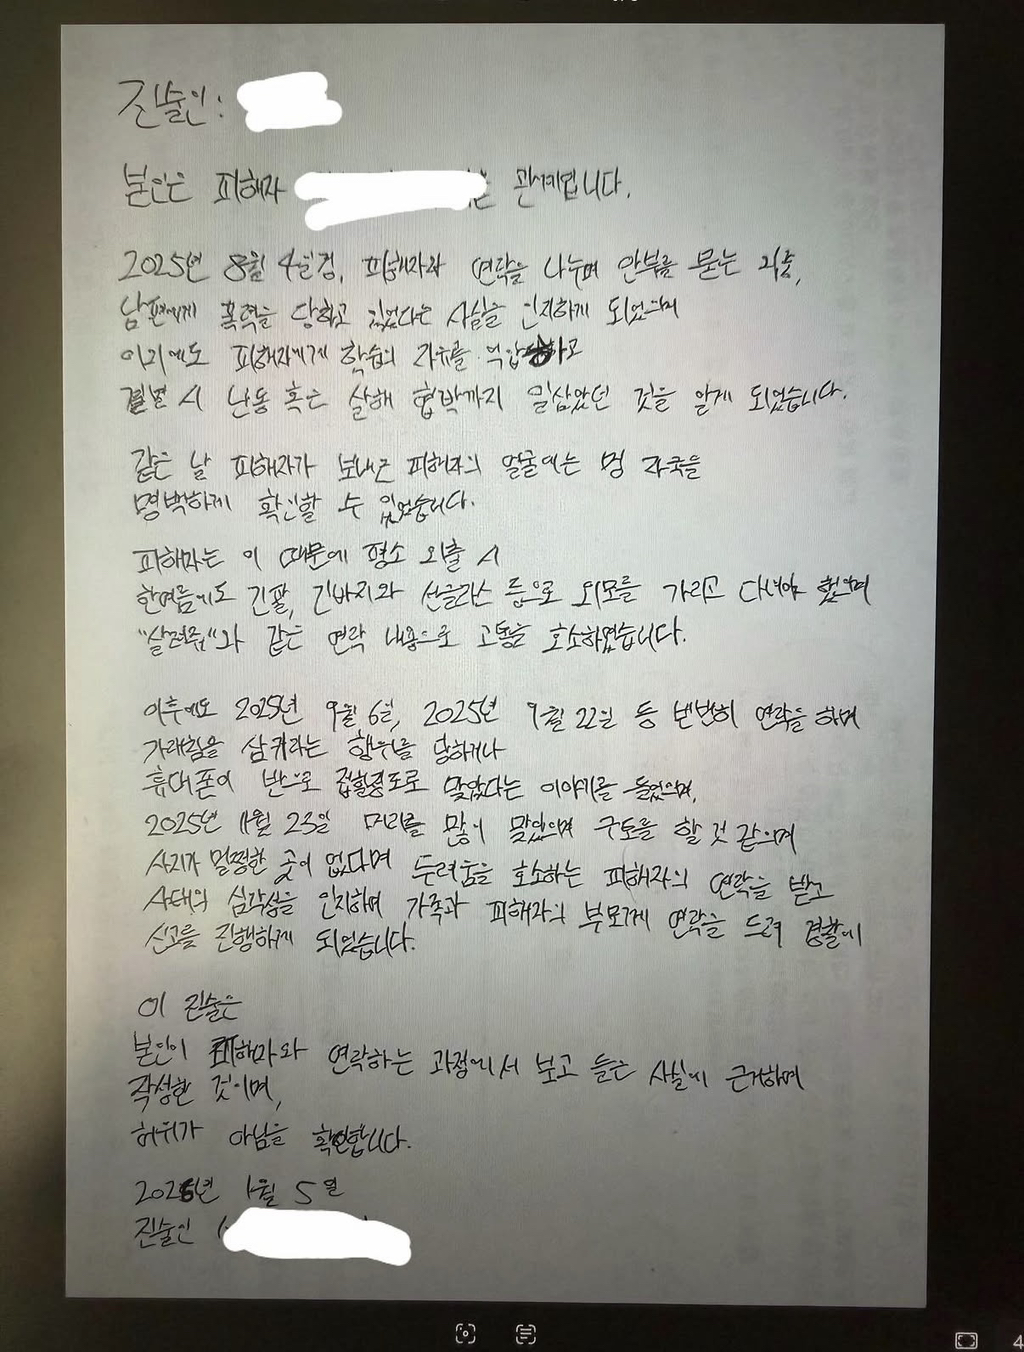 진술인:
본인은 피해자 는 관계입니다.
2025년 8월 4일경, 피해자와 연락을 나누며 안부를 묻는 과중,
남편에게 폭력을 당하고 있었다는 사실을 인지하게 되었으며
이외에도 피해자에게 학습의 자유를 억압하고
결별 시 난동 혹은 살해 협박까지 일삼았던 것을 알게 되었습니다.
같은 날 피해자가 보내온 피해자의 얼굴에는 멍 자국을
명백하게 확인할 수 있었습니다.
피해자는 이 때문에 평소 외출 시
한여름에도 긴팔, 긴바지와 선글라스 등으로 외모를 가리고 다녀야 했으며
"살려줘"와 같은 연락 내용으로 고통을 호소하였습니다.
이후에도 2025년 9월 6일, 2025년 9월 22일 등 빈번히 연락을 하며
가래침을 삼키라는 행위를 당하거나
휴대폰이 반으로 접힐정도로 맞았다는 이야기를 들었으며,
2025년 11월 23일 머리를 많이 맞았으며 구토를 할 것 같으며
사지가 멀쩡한 곳이 없다며 두려움을 호소하는 피해자의 연락을 받고
사태의 심각성을 인지하며 가족과 피해자의 부모에게 연락을 드려 경찰에
신고를 진행하게 되었습니다.
이 진술은
본인이 피해자와 연락하는 과정에서 보고 들은 사실에 근거하며
작성한 것이며,
허위가 아님을 확인합니다.
2026년 1월 5일
진술인 (
4